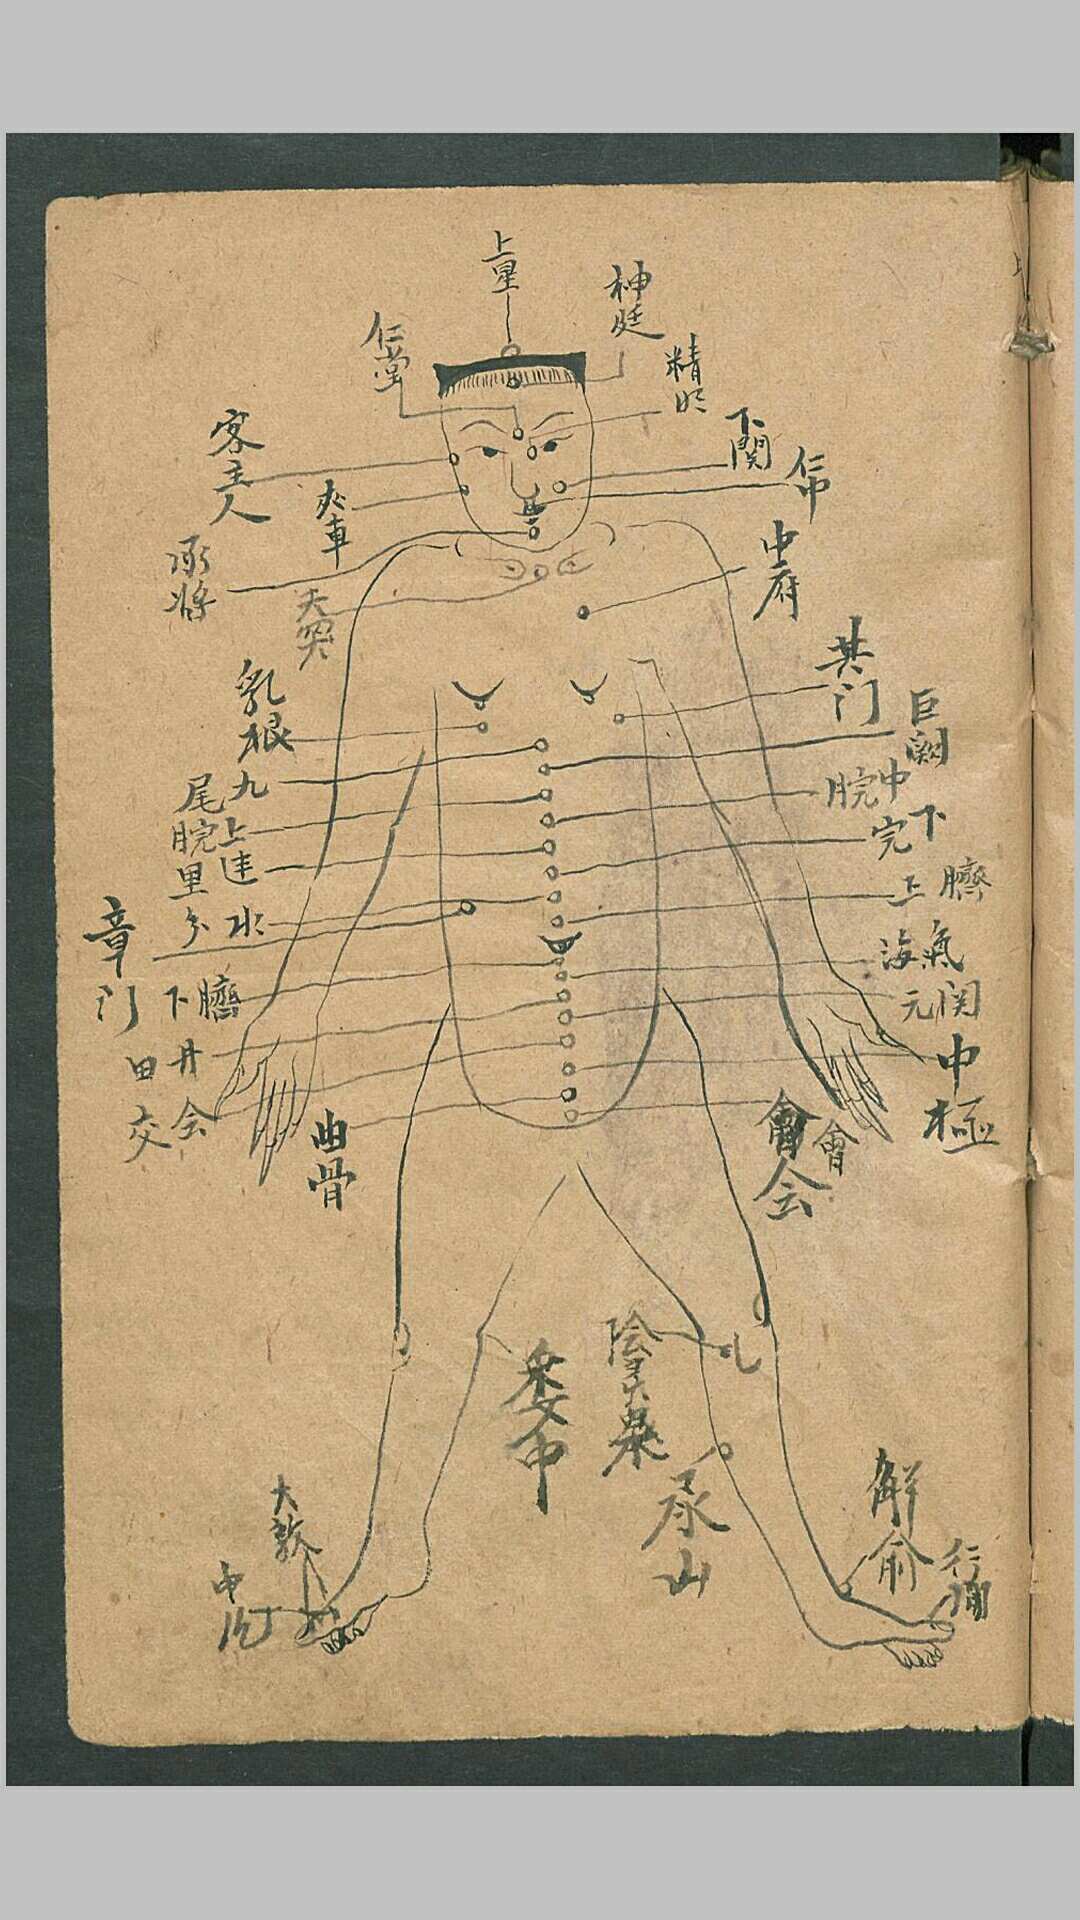 上星
神廷
仁堂
精明
下關
仁中
客主人
夾車
承將
天突
中府
乳根
其门
巨阙
九尾
中脘
上脘
下完
建里
上臍
水分
章门
氣海
下臍
関元
井田
中極
会交
曲骨
會
会
陰
泉
委中
承山
解俞
大敦
行
中